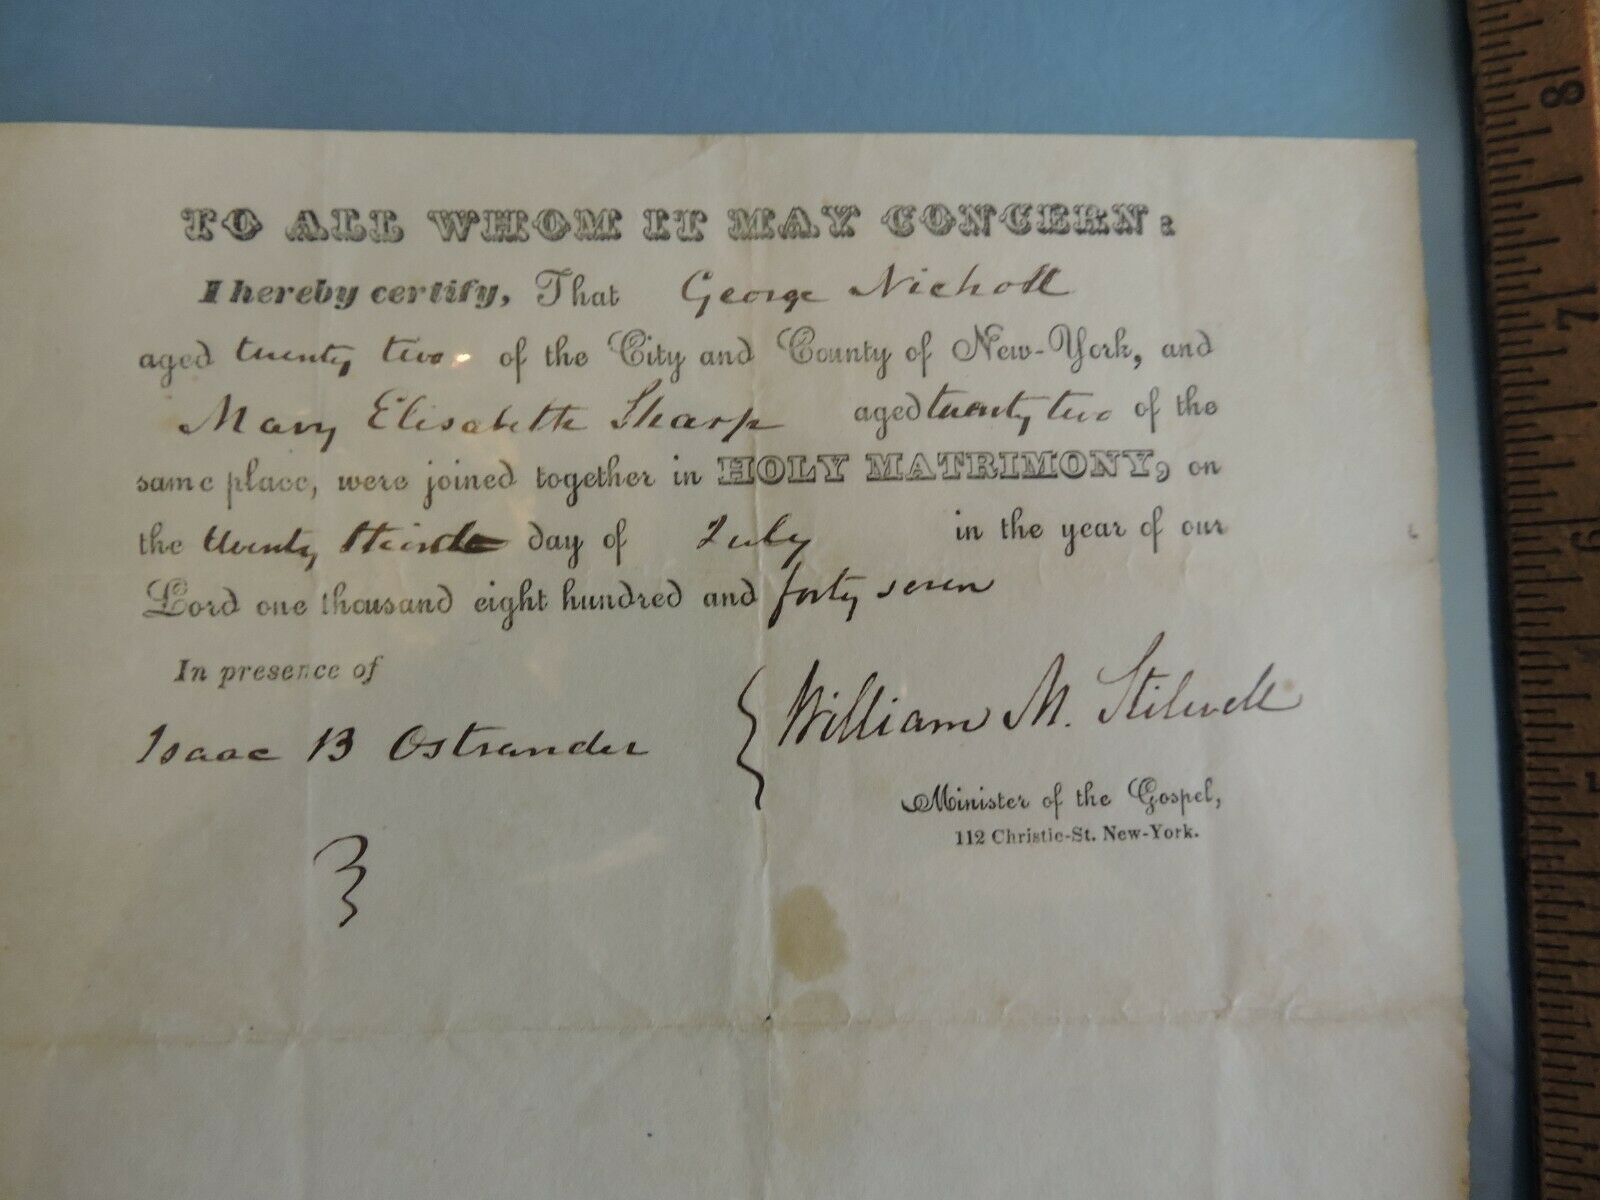 TO ALL WHOM IT MAY CONCERN:
I hereby certify, That George Nicholl
aged twenty two of the City and County of New-York, and
Mary Elisabeth Sharp aged twenty two of the
same place, were joined together in HOLY MATRIMONY, on
the twenty third day of July in the year of our
Lord one thousand eight hundred and forty seven
In presence of
Isaac B Ostrander
William M. Stilwell
Minister of the Gospel,
112 Christie-St. New-York.
8
7
6
5